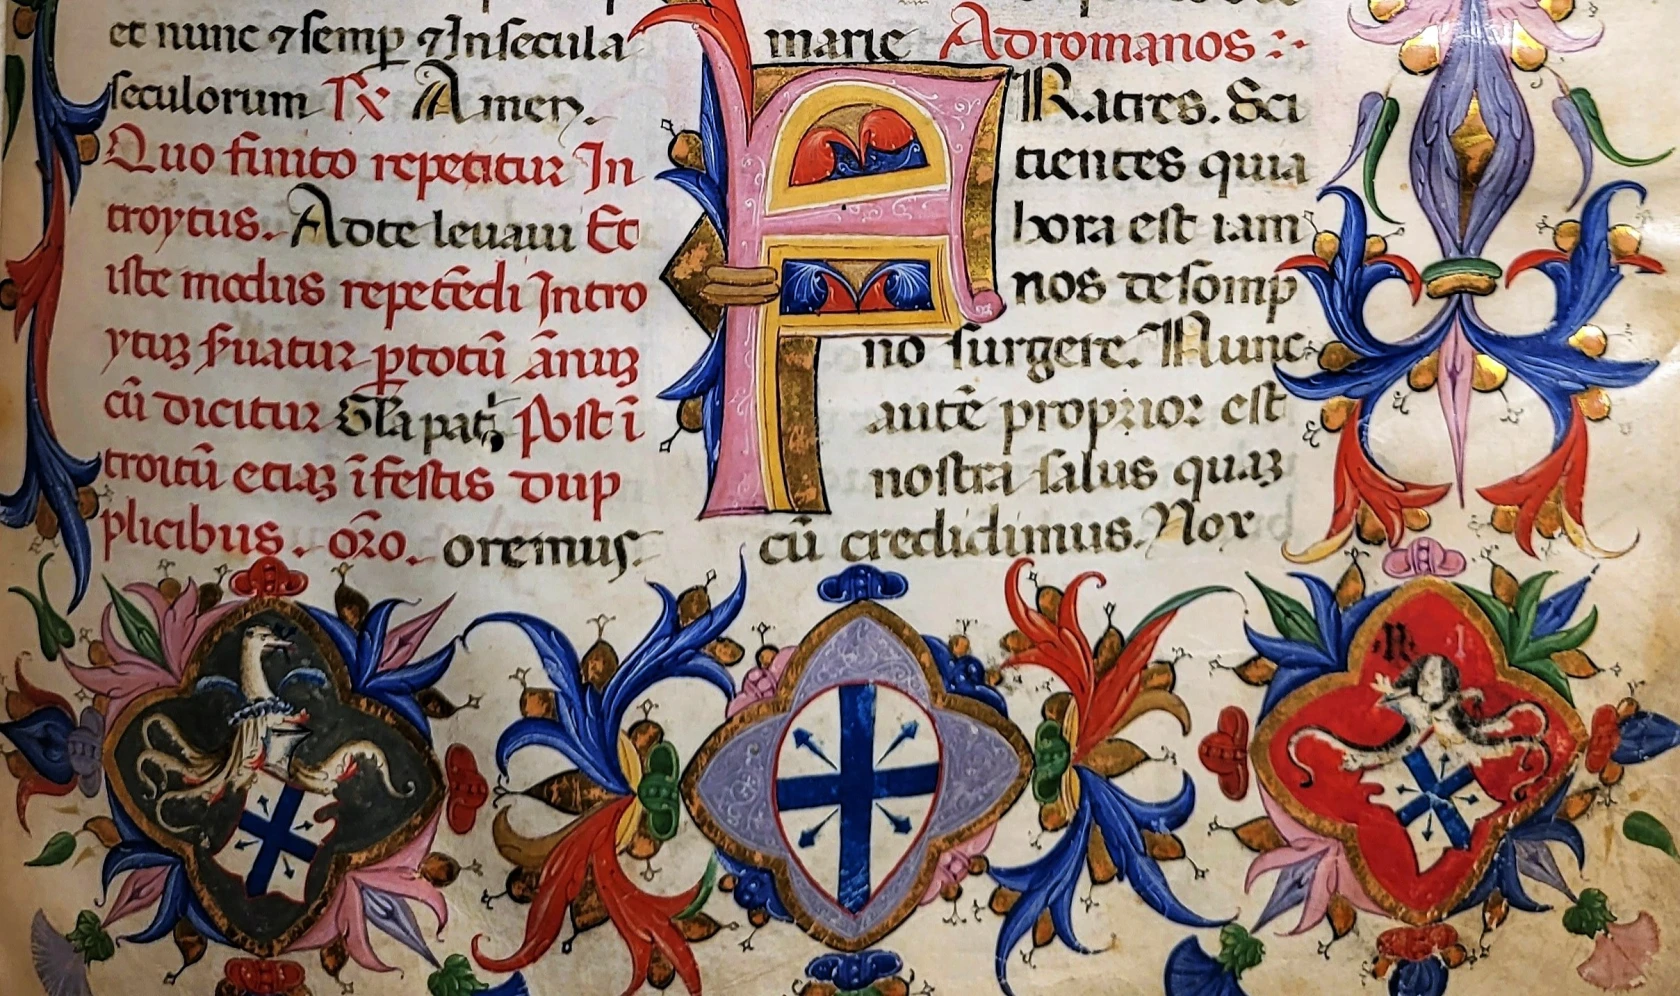 et nunc ⁊ semp̱ ⁊ In secula
seculorum Rx Amen.
Quo finito repetitur In
troytus. Ad te leuaui Et
iste modus repetēdi Intro
ytuꝫ ẜuatur ꝑ totū ānuꝫ
cū dicitur Gl'a pat̄ Post ī
troitū etiaꝫ ī festis dup
plicibus. or̄o. oremus.
marie Ad romanos :·
FRatres. Sci
tientes quia
hora est iam
nos de somp
no surgere. Nunc
autē propior est
nostra salus quaꝫ
cū credidimus. Nox
·N· I